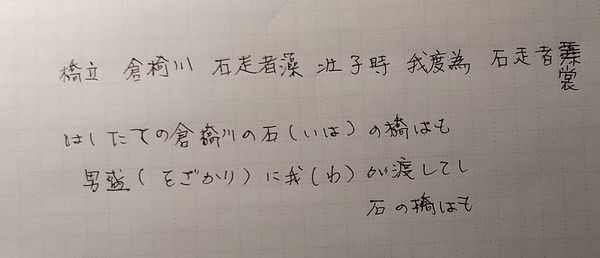 橋立 倉椅川 石走者藻 壮子時 我度為 石走者裳
はしたての倉橋川の石(いは)の橋はも
男盛(をざかり)に我(わ)が渡してし
石の橋はも